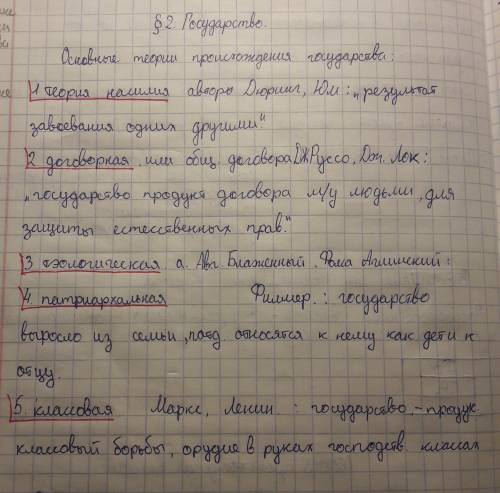 §2. Государство.
Основные теории происхождения государства:
1 теория насилия авторы Дюринг, Юм: „результат
завоевания одних другими."
2 договорная или общ. договора ДжРуссо, Дж. Лок:
„государство продукт договора м/у людьми, для
защиты естесственных прав."
3 теологическая а. Авг. Блаженный. Фома Аквинский:
4. патриархальная Филмер. : государство
выросло из семьи, относятся к нему как дети к
отцу.
5. классовая Маркс, Ленин. : государство -продук
классовый борьбы, орудие в руках господств. классах